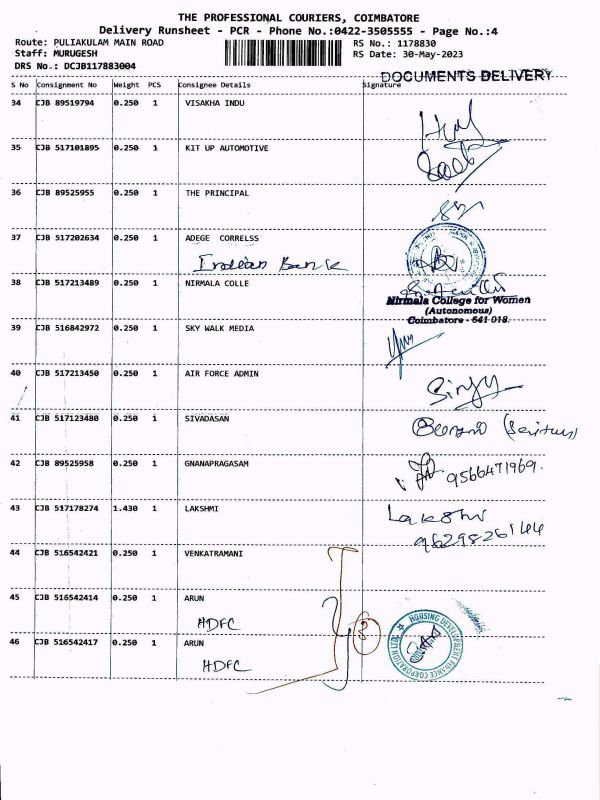 THE PROFESSIONAL COURIERS, COIMBATORE
Delivery Runsheet - PCR - Phone No.:0422-3505555 - Page No.:4
Route: PULIAKULAM MAIN ROAD RS No.: 1178830
Staff: MURUGESH RS Date: 30-May-2023
DRS No.: DCJB117883004
DOCUMENTS DELIVERY
S No Consignment No Weight PCS Consignee Details Signature
34 CJB 89519794 0.250 1 VISAKHA INDU
35 CJB 517101895 0.250 1 KIT UP AUTOMOTIVE
36 CJB 89525955 0.250 1 THE PRINCIPAL
37 CJB 517202634 0.250 1 ADEGE CORRELSS
Indian Bank
38 CJB 517213489 0.250 1 NIRMALA COLLE
Nirmala College for Women
(Autonomous)
Coimbatore - 641 018.
39 CJB 516842972 0.250 1 SKY WALK MEDIA
40 CJB 517213450 0.250 1 AIR FORCE ADMIN
41 CJB 517123480 0.250 1 SIVADASAN
42 CJB 89525958 0.250 1 GNANAPRAGASAM
9566471969.
43 CJB 517178274 1.430 1 LAKSHMI
Lakshmi
9629826144
44 CJB 516542421 0.250 1 VENKATRAMANI
45 CJB 516542414 0.250 1 ARUN
HDFC
HOUSING DEVELOPMENT FINANCE CORPORATION LTD
46 CJB 516542417 0.250 1 ARUN
HDFC